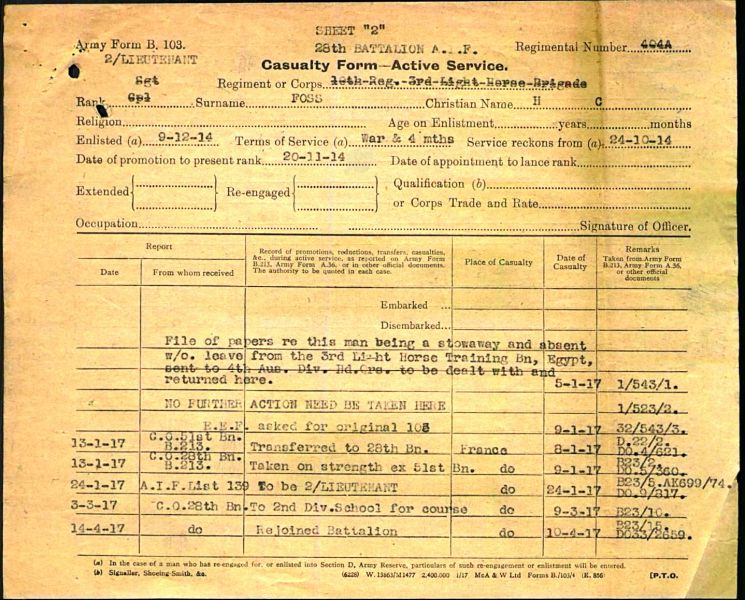 SHEET "2"
Army Form B. 103. 28th BATTALION A.I.F. Regimental Number 404A
2/LIEUTENANT Casualty Form—Active Service.
Sgt Regiment or Corps 10th-Reg.-3rd-Light-Horse-Brigade
Rank Cpl Surname FOSS Christian Name H C
Religion Age on Enlistment years months
Enlisted (a) 9-12-14 Terms of Service (a) War & 4 mths Service reckons from (a) 24-10-14
Date of promotion to present rank 20-11-14 Date of appointment to lance rank
Extended Re-engaged Qualification (b)
or Corps Trade and Rate
Occupation Signature of Officer.
Report
Date From whom received
Record of promotions, reductions, transfers, casualties, &c., during active service, as reported on Army Form B.213, Army Form A.36, or in other official documents. The authority to be quoted in each case.
Place of Casualty
Date of Casualty
Remarks Taken from Army Form B.213, Army Form A.36, or other official documents
Embarked ...
Disembarked...
File of papers re this man being a stowaway and absent
w/o. leave from the 3rd Light Horse Training Bn, Egypt,
sent to 4th Aus. Div. Hd.Qrs. to be dealt with and
returned here. 5-1-17 1/543/1.
NO FURTHER ACTION NEED BE TAKEN HERE 1/523/2.
E.E.F. asked for original 103 9-1-17 32/543/3.
13-1-17 C.O.51st Bn. B.213. Transferred to 28th Bn. France 8-1-17 D.22/2. DO.4/621.
13-1-17 C.O.28th Bn. B.213. Taken on strength ex 51st Bn. do 9-1-17 B23/2. DO.5/360.
24-1-17 A.I.F.List 139 To be 2/LIEUTENANT do 24-1-17 B23/5.AK699/74. DO.9/317.
3-3-17 C.O.28th Bn. To 2nd Div.School for course do 9-3-17 B23/10.
14-4-17 do Rejoined Battalion do 10-4-17 B23/15. DO33/2659.
(a) In the case of a man who has re-engaged for, or enlisted into Section D, Army Reserve, particulars of such re-engagement or enlistment will be entered.
(b) Signaller, Shoeing-Smith, &c. (6228) W.13863/M1477 2,400,000 1/17 McA & W Ltd Forms B./103/4 (E. 856) [P.T.O.